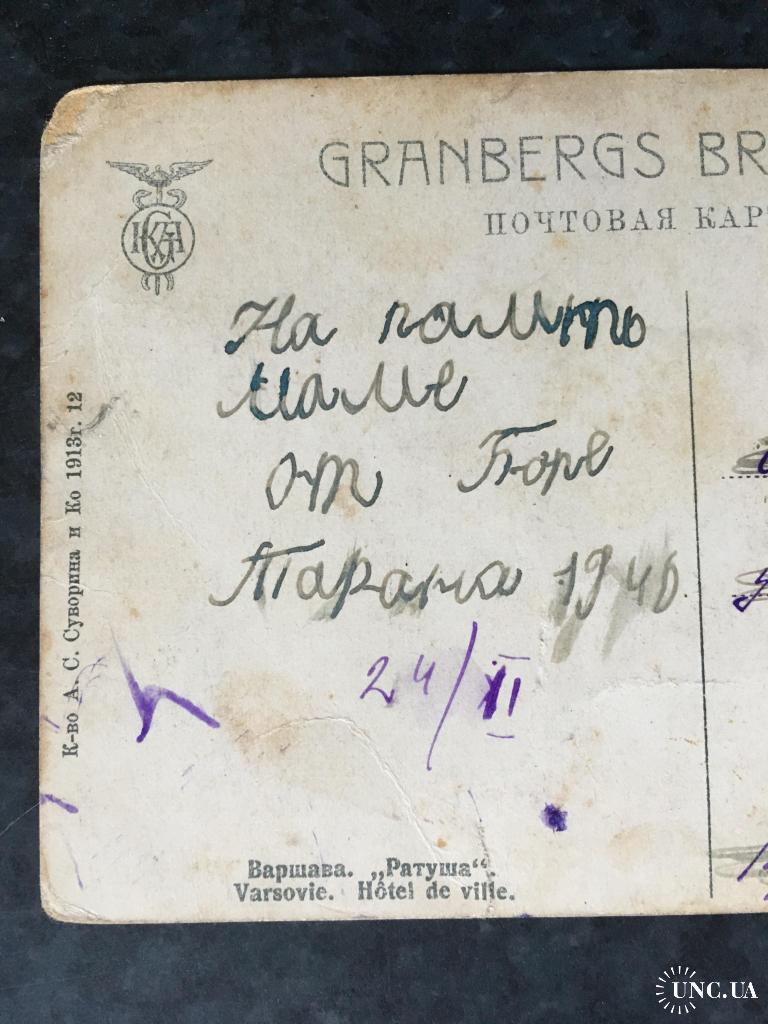 GRANBERGS BR
ПОЧТОВАЯ КАР
На память
маме
от Боре
Тарана 1940
24/II
К-во А. С. Суворина и Ко 1913г. 12
Варшава. „Ратуша“.
Varsovie. Hôtel de ville.
UNC.UA